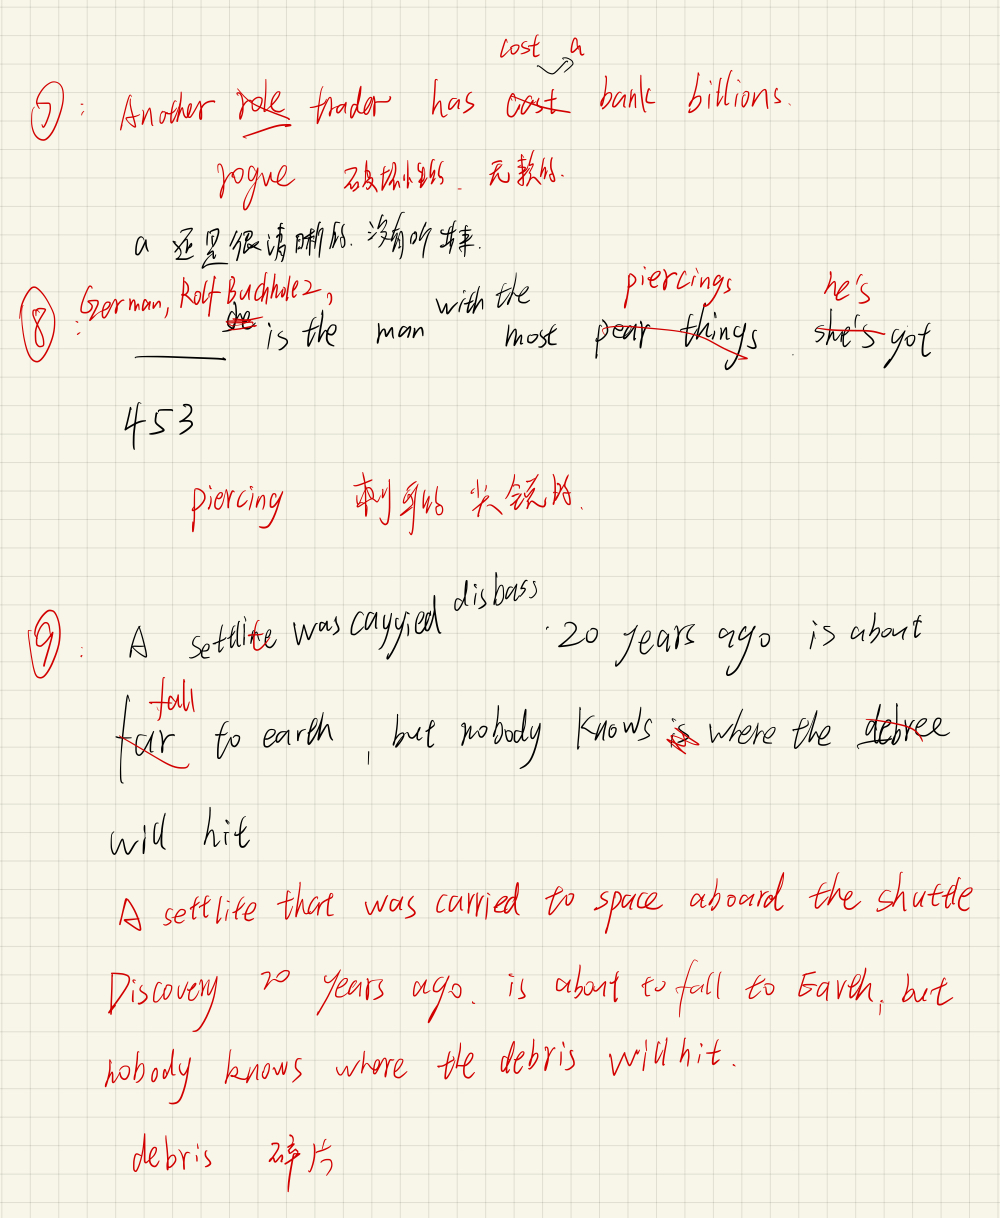 cost a
⑤: Another role trader has cost bank billions.
rogue 破坏性的. 无赖的.
a 还是很清晰的. 没有听出来.
German, Rolf Buchholz, with the piercings he's
⑧: he is the man most pear things. she's got
453
piercing 刺耳的 尖锐的.
disbass
⑨: A settlite was cayyied . 20 years ago is about
fall
far to earth, but nobody knows is where the debree
will hit
A settlite that was carried to space aboard the shuttle
Discovery 20 years ago. is about to fall to Earth, but
nobody knows where the debris will hit.
debris 碎片